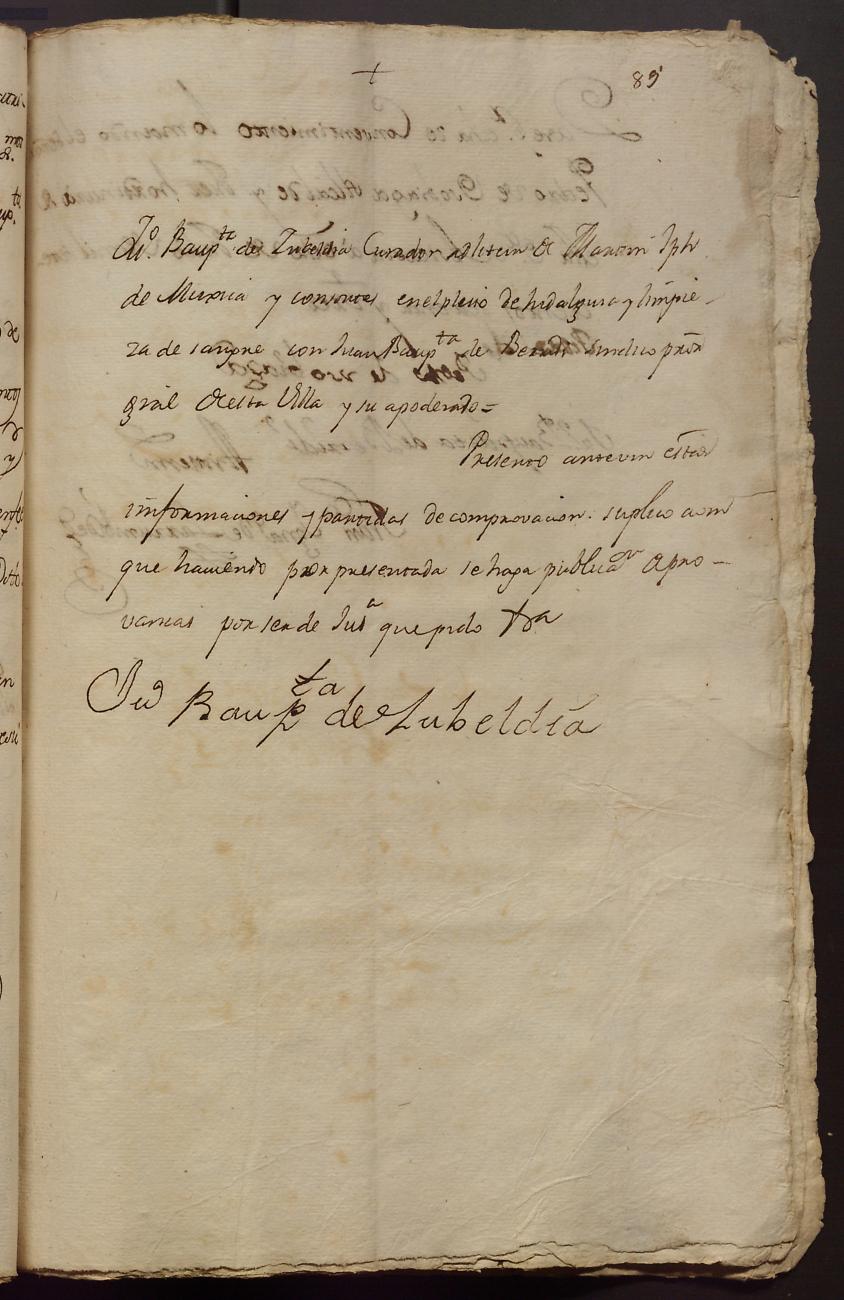 +
85
Ju.º Baup.ta de Zubeldia Curador adlitem de Martin Jph
de Murua y consortes enelpleito de hidalguia y limpie-
za de sangre con Juan Baup.ta de Sindico pror
gral de esta Villa y su apoderado=
Presento antevm estas
imformaciones y partidas de comprovacion. suplico avm
que haviendo por presentada se haga publicaon de pro-
vanzas por ser de Jusa que pido &ra
Juo Baupta de Zubeldia